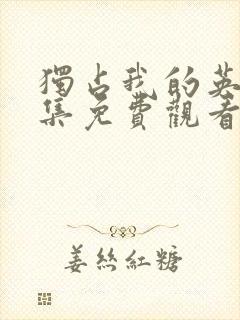 獨占我的英
集免費觀看
姜絲紅糖